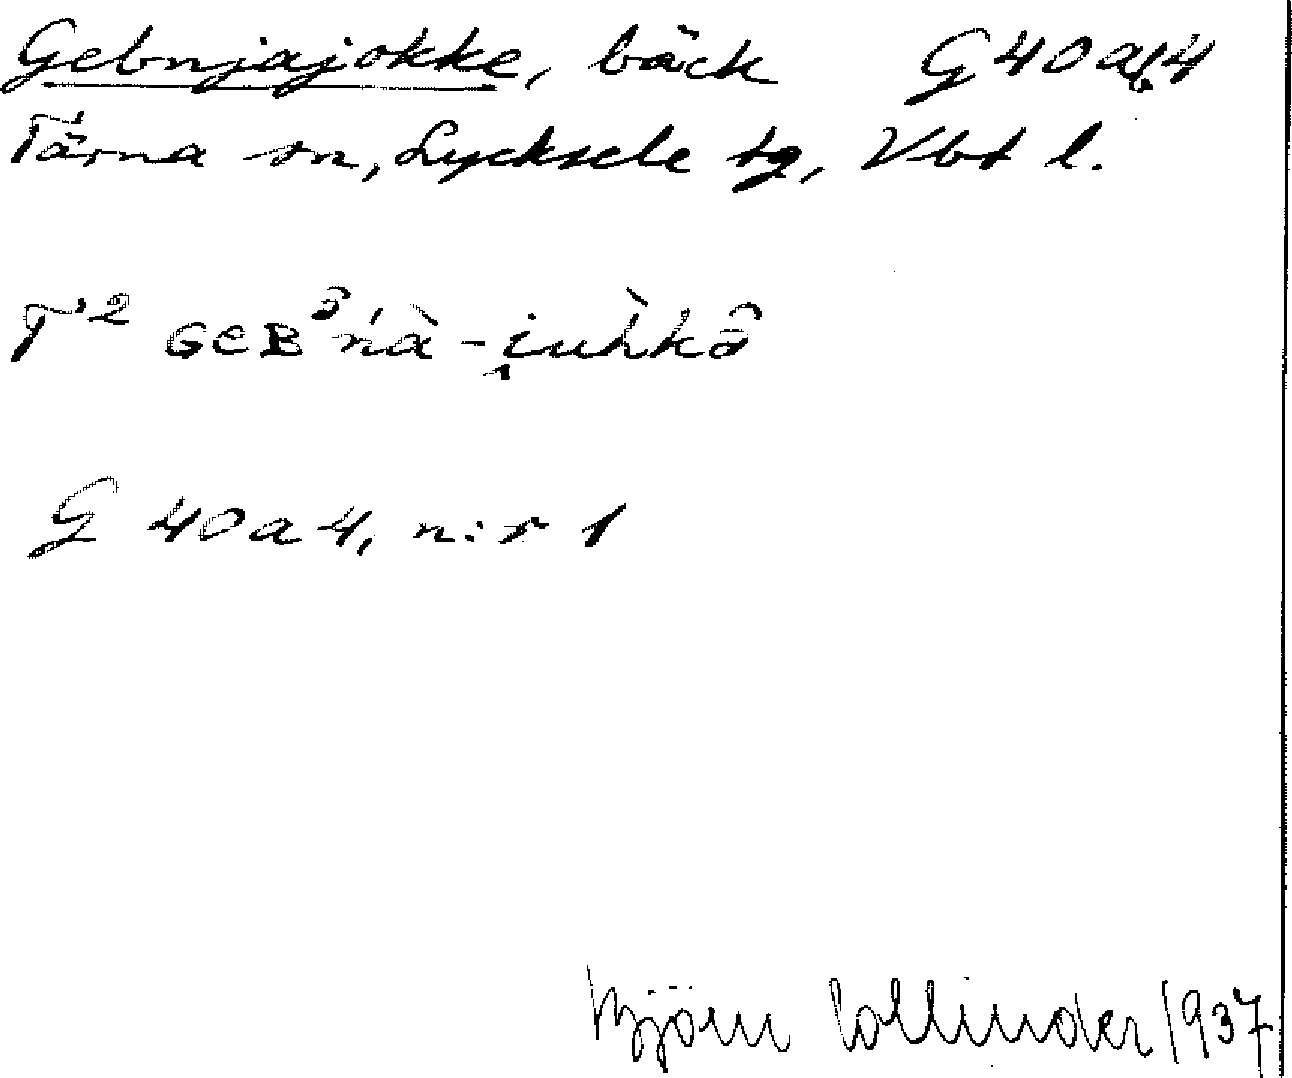 Gebnjajokke, bäck G 40 a 4
Tärna sn, Lycksele tg, Vbt l.
T²
G 40 a 4, n:r 1
Björn Collinder 1937